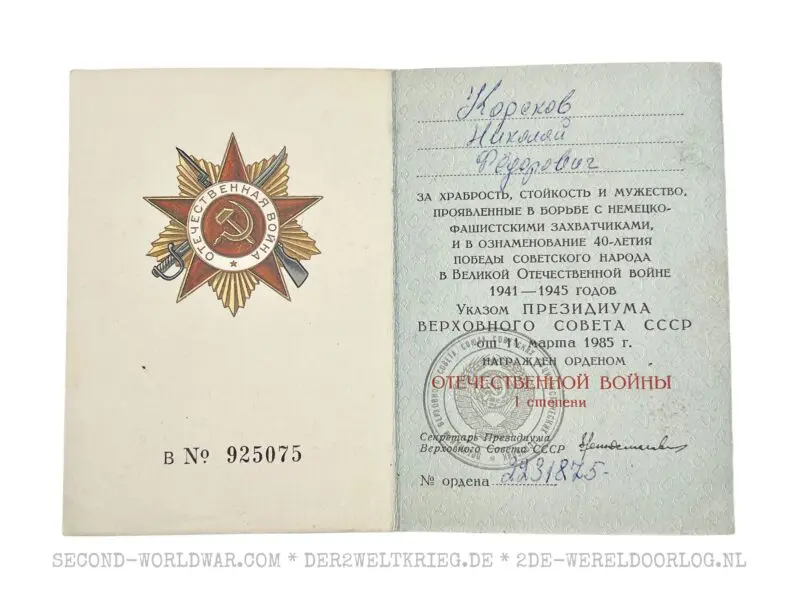 ОТЕЧЕСТВЕННАЯ ВОЙНА
В № 925075
Корсков
Николай
Фёдорович
ЗА ХРАБРОСТЬ, СТОЙКОСТЬ И МУЖЕСТВО,
ПРОЯВЛЕННЫЕ В БОРЬБЕ С НЕМЕЦКО-
ФАШИСТСКИМИ ЗАХВАТЧИКАМИ,
И В ОЗНАМЕНОВАНИЕ 40-ЛЕТИЯ
ПОБЕДЫ СОВЕТСКОГО НАРОДА
В ВЕЛИКОЙ ОТЕЧЕСТВЕННОЙ ВОЙНЕ
1941—1945 ГОДОВ
УКАЗОМ ПРЕЗИДИУМА
ВЕРХОВНОГО СОВЕТА СССР
от 11 марта 1985 г.
НАГРАЖДЕН ОРДЕНОМ
ОТЕЧЕСТВЕННОЙ ВОЙНЫ
I степени
Секретарь Президиума
Верховного Совета СССР
№ ордена 2231875
SECOND-WORLDWAR.COM * DER2WELTKRIEG.DE * 2DE-WERELDOORLOG.NL